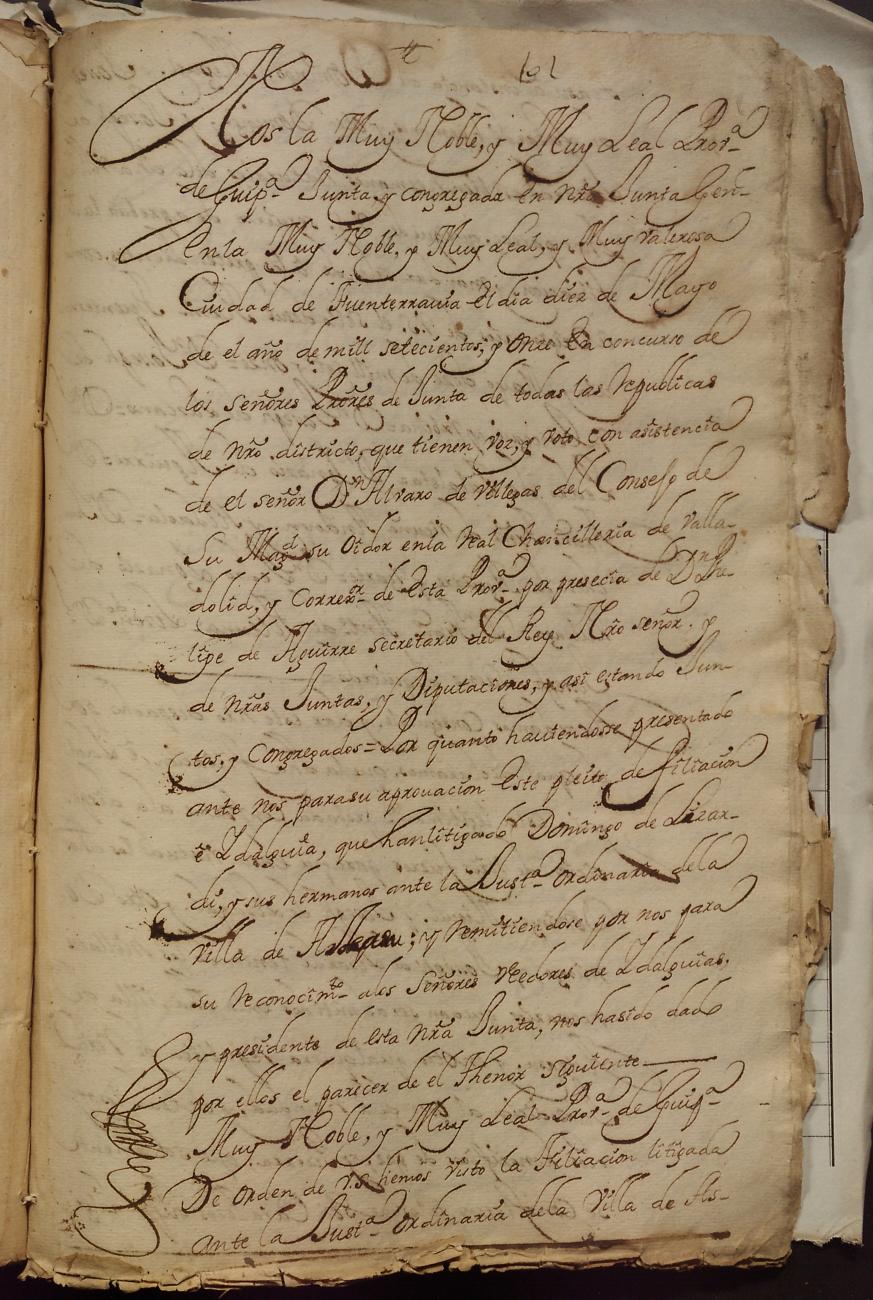 101
Nos la Muy Noble, y Muy Leal Prova
de Guipa Junta, y congregada en Nra Junta Genl
En la Muy Noble, y Muy Leal, y Muy valerosa
Ciudad de Fuenterravia El dia diez de Mayo
de el año de mill setecientos, y onze En concurso de
los señores Prores de Junta de todas las Republicas
de Nro districto, que tienen voz, y voto con asistencia
de el señor Dn Alvaro de Villegas del Consejo de
Su Magd su Oidor en la Real Chancilleria de Valla-
dolid, y Corregor de Esta Prova por presecia de Dn Phe-
lipe de Aguirre secretario del Rey Nro señor. y
de Nras Juntas, y Diputaciones, y asi estando Jun-
tos, y Congregados = Por quanto haviendosse presentado
ante nos para su aprovacion Este pleito de filiacion
e Ydalguia, que han litigado Domingo de Lizar-
di, y sus hermanos ante la Justa ordinaria de la
Villa de y Remitiendose por nos para
su Reconocimto alos Señores Veedores de Ydalguias.
y presidente de esta Nra Junta, nos hasido dado
por ellos el parecer de el Thenor siguiente
Muy Noble, y Muy Leal Prova de Guipa
De Orden de V.S. hemos visto la Filiacion litigada
ante la Justa ordinaria dela Villa de As-